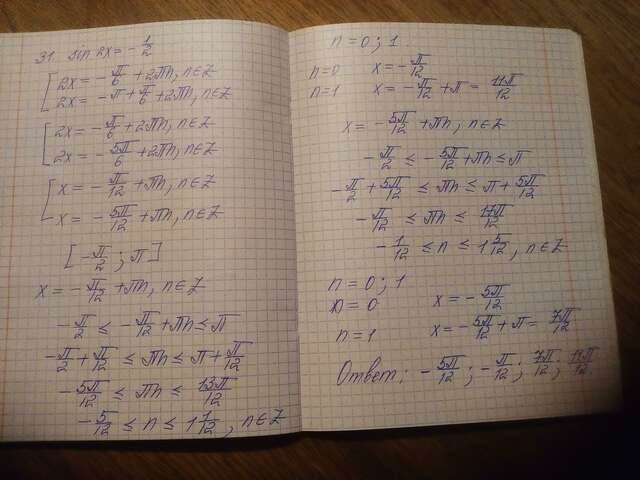 31. sin 2x = -1/2
[ 2x = -π/6 + 2πn, n∈Z
2x = -π + π/6 + 2πn, n∈Z
[ 2x = -π/6 + 2πn, n∈Z
2x = -5π/6 + 2πn, n∈Z
[ x = -π/12 + πn, n∈Z
x = -5π/12 + πn, n∈Z
[-π/2 ; π]
x = -π/12 + πn, n∈Z
-π/2 ≤ -π/12 + πn ≤ π
-π/2 + π/12 ≤ πn ≤ π + π/12
-5π/12 ≤ πn ≤ 13π/12
-5/12 ≤ n ≤ 1 1/12, n∈Z
n = 0 ; 1
n=0 x = -π/12
n=1 x = -π/12 + π = 11π/12
x = -5π/12 + πn, n∈Z
-π/2 ≤ -5π/12 + πn ≤ π
-π/2 + 5π/12 ≤ πn ≤ π + 5π/12
-π/12 ≤ πn ≤ 17π/12
-1/12 ≤ n ≤ 1 5/12, n∈Z
n = 0 ; 1
n = 0 x = -5π/12
n = 1 x = -5π/12 + π = 7π/12
Ответ: -5π/12 ; -π/12 ; 7π/12 ; 11π/12.